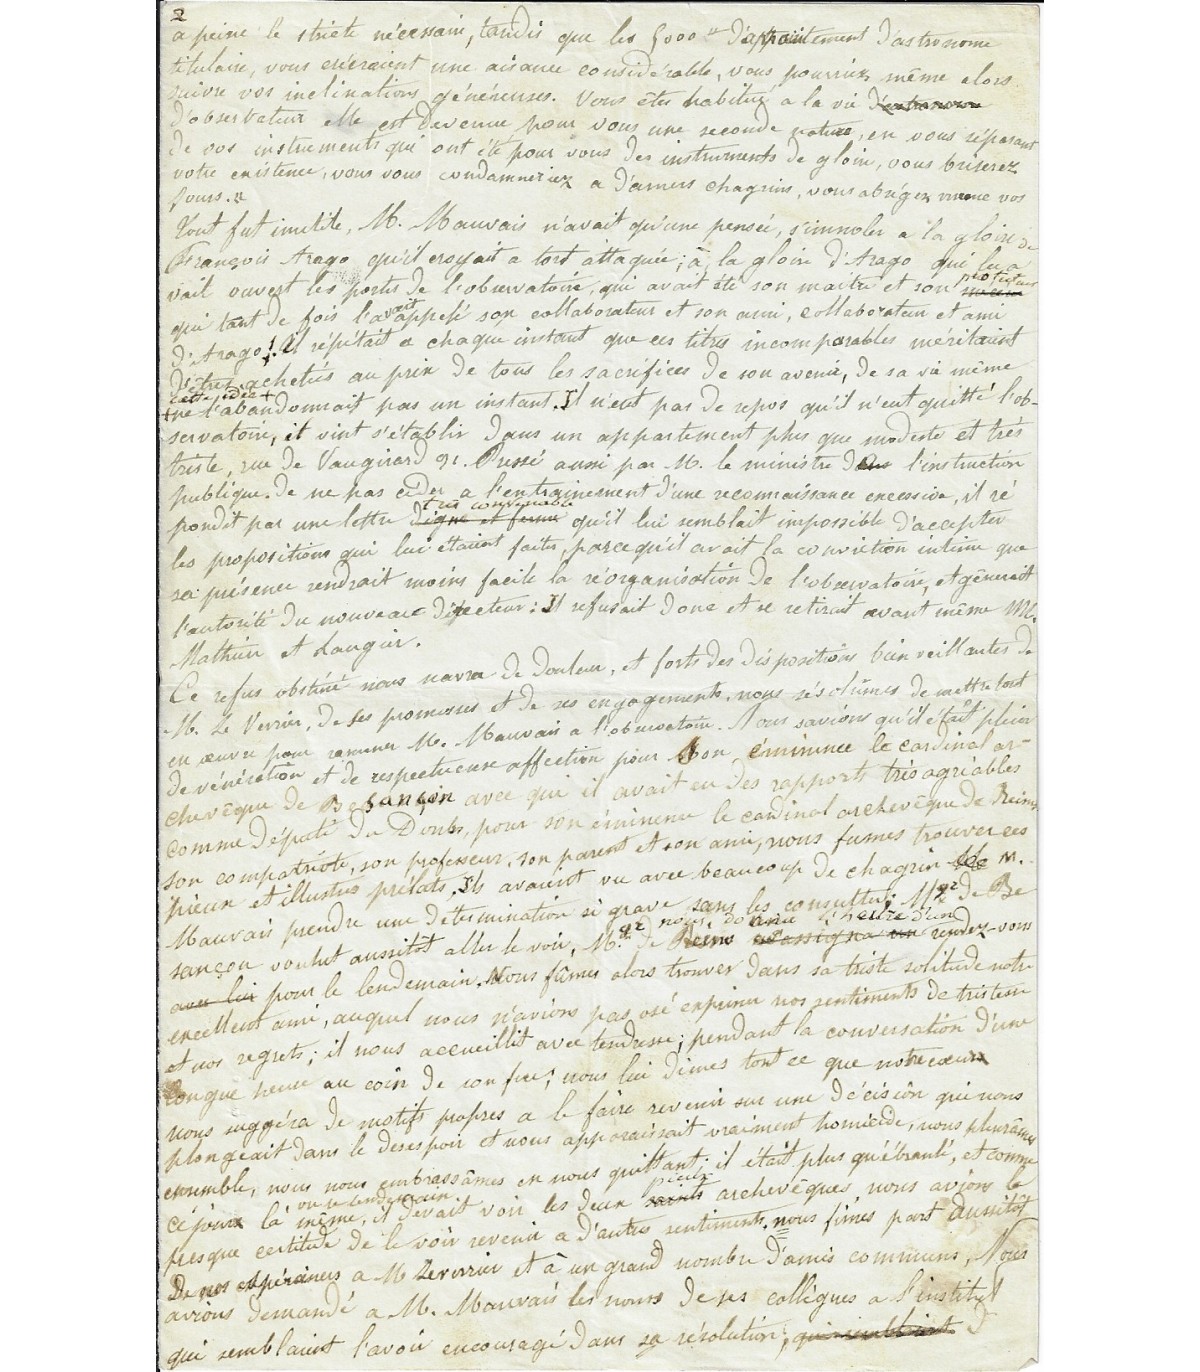 2
a peine le stricte nécessaire, tandis que les 5000 fr d'appointement d'astronome
titulaire, vous créeraient une aisance considérable, vous pourriez même alors
suivre vos inclinations généreuses. Vous êtes habitué a la vie
d'observateur elle est devenue pour vous une seconde nature, en vous séparant
de vos instruments qui ont été pour vous des instruments de gloire, vous briserez
votre existence, vous vous condamneriez a d'amers chagrins, vous abrégez même vos
jours."
Tout fut inutile, M. Mauvais n'avait qu'une pensée, s'immoler a la gloire de
François Arago qu'il croyait a tort attaquée; à la gloire d'Arago qui lui a
vait ouvert les portes de l'observatoire, qui avait été son maitre et son protecteur
qui tant de fois l'avait appelé son collaborateur et son ami, collaborateur et ami
d'Arago! Il répétait a chaque instant que ces titres incomparables méritaient
d'être achetés au prix de tous les sacrifices de son avenir, de sa vie même
cette idée
ne l'abandonnait pas un instant. Il n'eut pas de repos qu'il n'eut quitté l'ob-
servatoire, et vint s'établir dans un appartement plus que modeste et très
triste, rue de Vaugirard 91. Pressé aussi par M. le ministre de l'instruction
publique de ne pas céder a l'entrainement d'une reconnaissance excessive, il ré
pondit par une lettre très convenable digne et ferme qu'il lui semblait impossible d'accepter
les propositions qui lui étaient faites, parcequ'il avait la conviction intime que
sa présence rendrait moins facile la réorganisation de l'observatoire, et gênerait
l'autorité du nouveau directeur: Il refusait donc et se retirait avant même MM.
Mathieu et Laugier.
Ce refus obstiné nous navra de douleur, et forts des dispositions bienveillantes de
M. Le Verrier, de ses promesses et de ses engagements, nous résolûmes de mettre tout
en œuvre pour ramener M. Mauvais a l'observatoire. Nous savions qu'il était plein
de vénération et de respectueuse affection pour Son éminence le cardinal ar-
chevêque de Besançon avec qui il avait eu des rapports très agréables
comme député du Doubs, pour son éminence le cardinal archevêque de Reims,
son compatriote, son professeur, son parent et son ami, nous fumes trouver ces
pieux et illustres prélats. Ils avaient vu avec beaucoup de chagrin M.
Mauvais prendre une détermination si grave sans les consulter; Mgr de Be
sançon voulut aussitôt aller le voir, Mgr de Reims nous donna l'heure d'un assigna un rendez-vous
avec lui pour le lendemain. Nous fûmes alors trouver dans sa triste solitude notre
excellent ami, auquel nous n'avions pas osé exprimer nos sentiments de tristesse
et nos regrets; il nous accueillit avec tendresse; pendant la conversation d'une
longue heure au coin de son feu; nous lui dîmes tout ce que notre cœur
nous suggéra de motifs propres a le faire revenir sur une décision qui nous
plongeait dans le desespoir et nous apparaissait vraiment homicide, nous pleurâmes
ensemble, nous nous embrassâmes en nous quittant; il était plus qu'ébranlé, et comme
ce jour là même, ou le lendemain, il devait voir les deux pieux saints archevêques, nous avions la
presque certitude de le voir revenir a d'autres sentiments. nous fimes part aussitôt
de nos espérances a M Leverrier et à un grand nombre d'amis communs, Nous
avions demandé a M. Mauvais les noms de ses collègues a l'institut
qui semblaient l'avoir encouragé dans sa résolution, qui semblaient